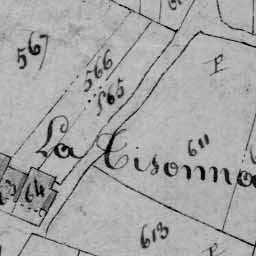 567
566
565
P
La Tisonna
611
64
613
P